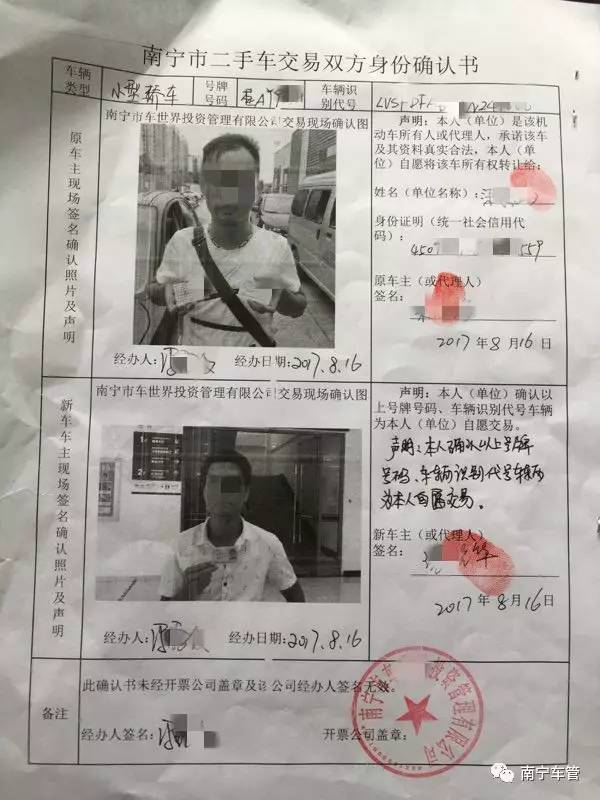 南宁市二手车交易双方身份确认书
车辆类型
小型轿车
号牌号码
车辆识别代号
原车主现场签名确认照片及声明
南宁市车世界投资管理有限公司交易现场确认图
经办人：
经办日期：2017.8.16
声明：本人（单位）是该机
动车所有人或代理人，承诺该车
及其资料真实合法，本人（单
位）自愿将该车所有权转让给：
姓名（单位名称）：
身份证明（统一社会信用代
码）：
原车主（或代理人）
签名：
2017年8月16日
新车车主现场签名确认照片及声明
南宁市车世界投资管理有限公司交易现场确认图
经办人：
经办日期：2017.8.16
声明：本人（单位）确认以
上号牌号码、车辆识别代号车辆
为本人（单位）自愿交易。
声明：本人确认以上号牌
号码、车辆识别代号车辆
为本人自愿交易。
新车主（或代理人）
签名：
2017年8月16日
备注
此确认书未经开票公司盖章及该公司经办人签名无效。
经办人签名：
开票公司盖章：
南宁市
投资管理有限公司
南宁车管